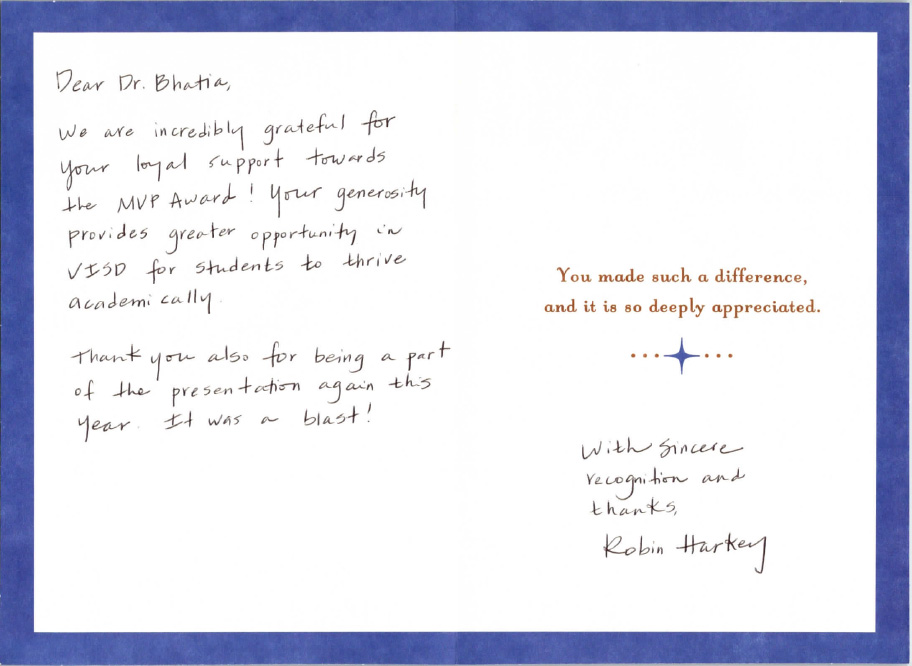 Dear Dr. Bhatia,
We are incredibly grateful for
your loyal support towards
the MVP Award! Your generosity
provides greater opportunity in
VISD for students to thrive
academically.
Thank you also for being a part
of the presentation again this
year. It was a blast!
You made such a difference,
and it is so deeply appreciated.
With sincere
recognition and
thanks,
Robin Harkey